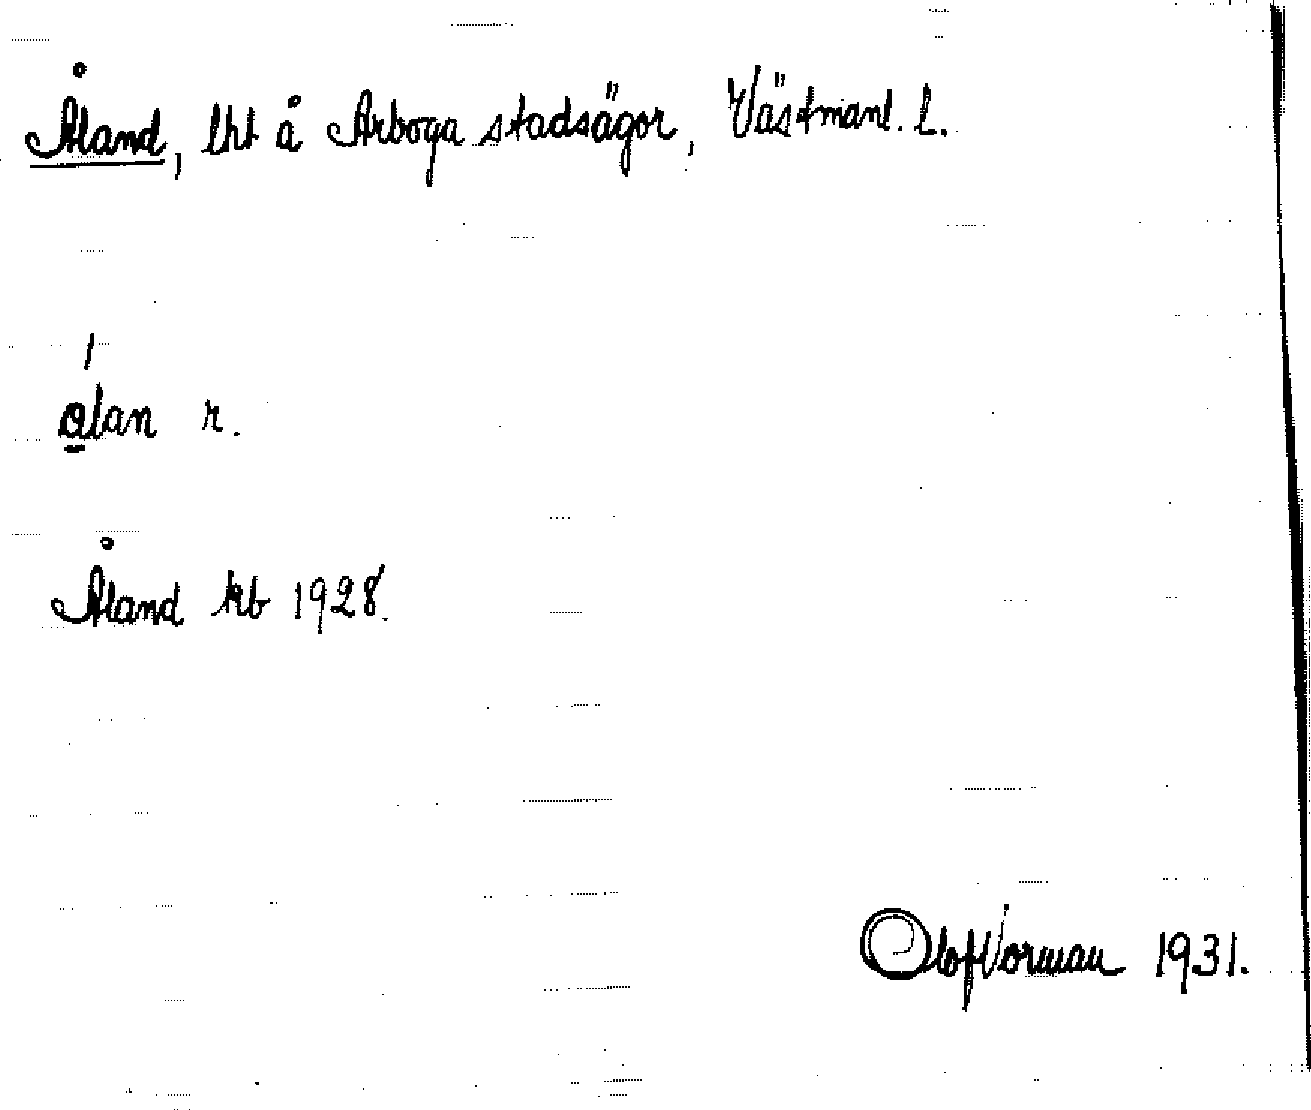 Åland, lht å Arboga stadsägor, Västmanl. l.
ólan r.
Åland kb 1928.
Olof Vorman 1931.